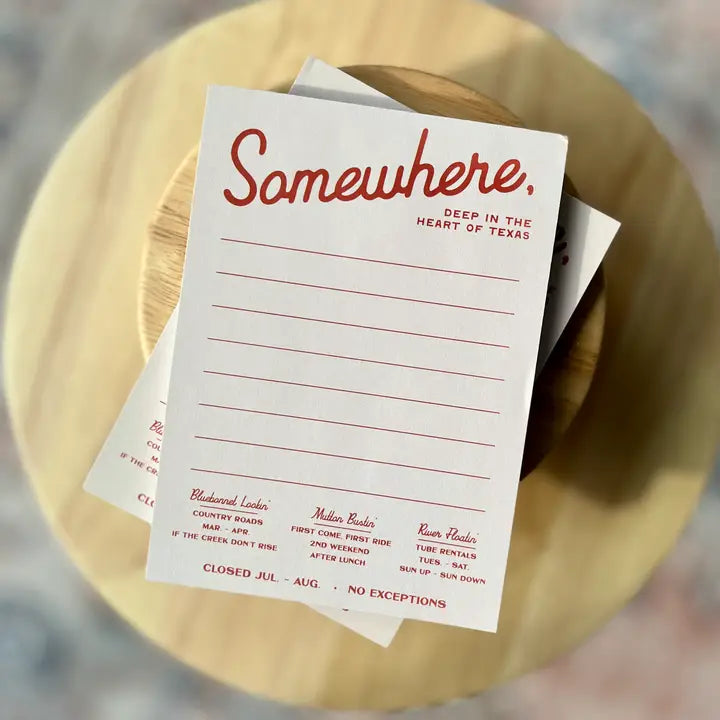 Somewhere,
DEEP IN THE
HEART OF TEXAS
Bluebonnet Lookin'
COUNTRY ROADS
MAR. - APR.
IF THE CREEK DON'T RISE
Mutton Bustin'
FIRST COME, FIRST RIDE
2ND WEEKEND
AFTER LUNCH
River Floatin'
TUBE RENTALS
TUES. - SAT.
SUN UP - SUN DOWN
CLOSED JUL. - AUG. · NO EXCEPTIONS
IF THE CR